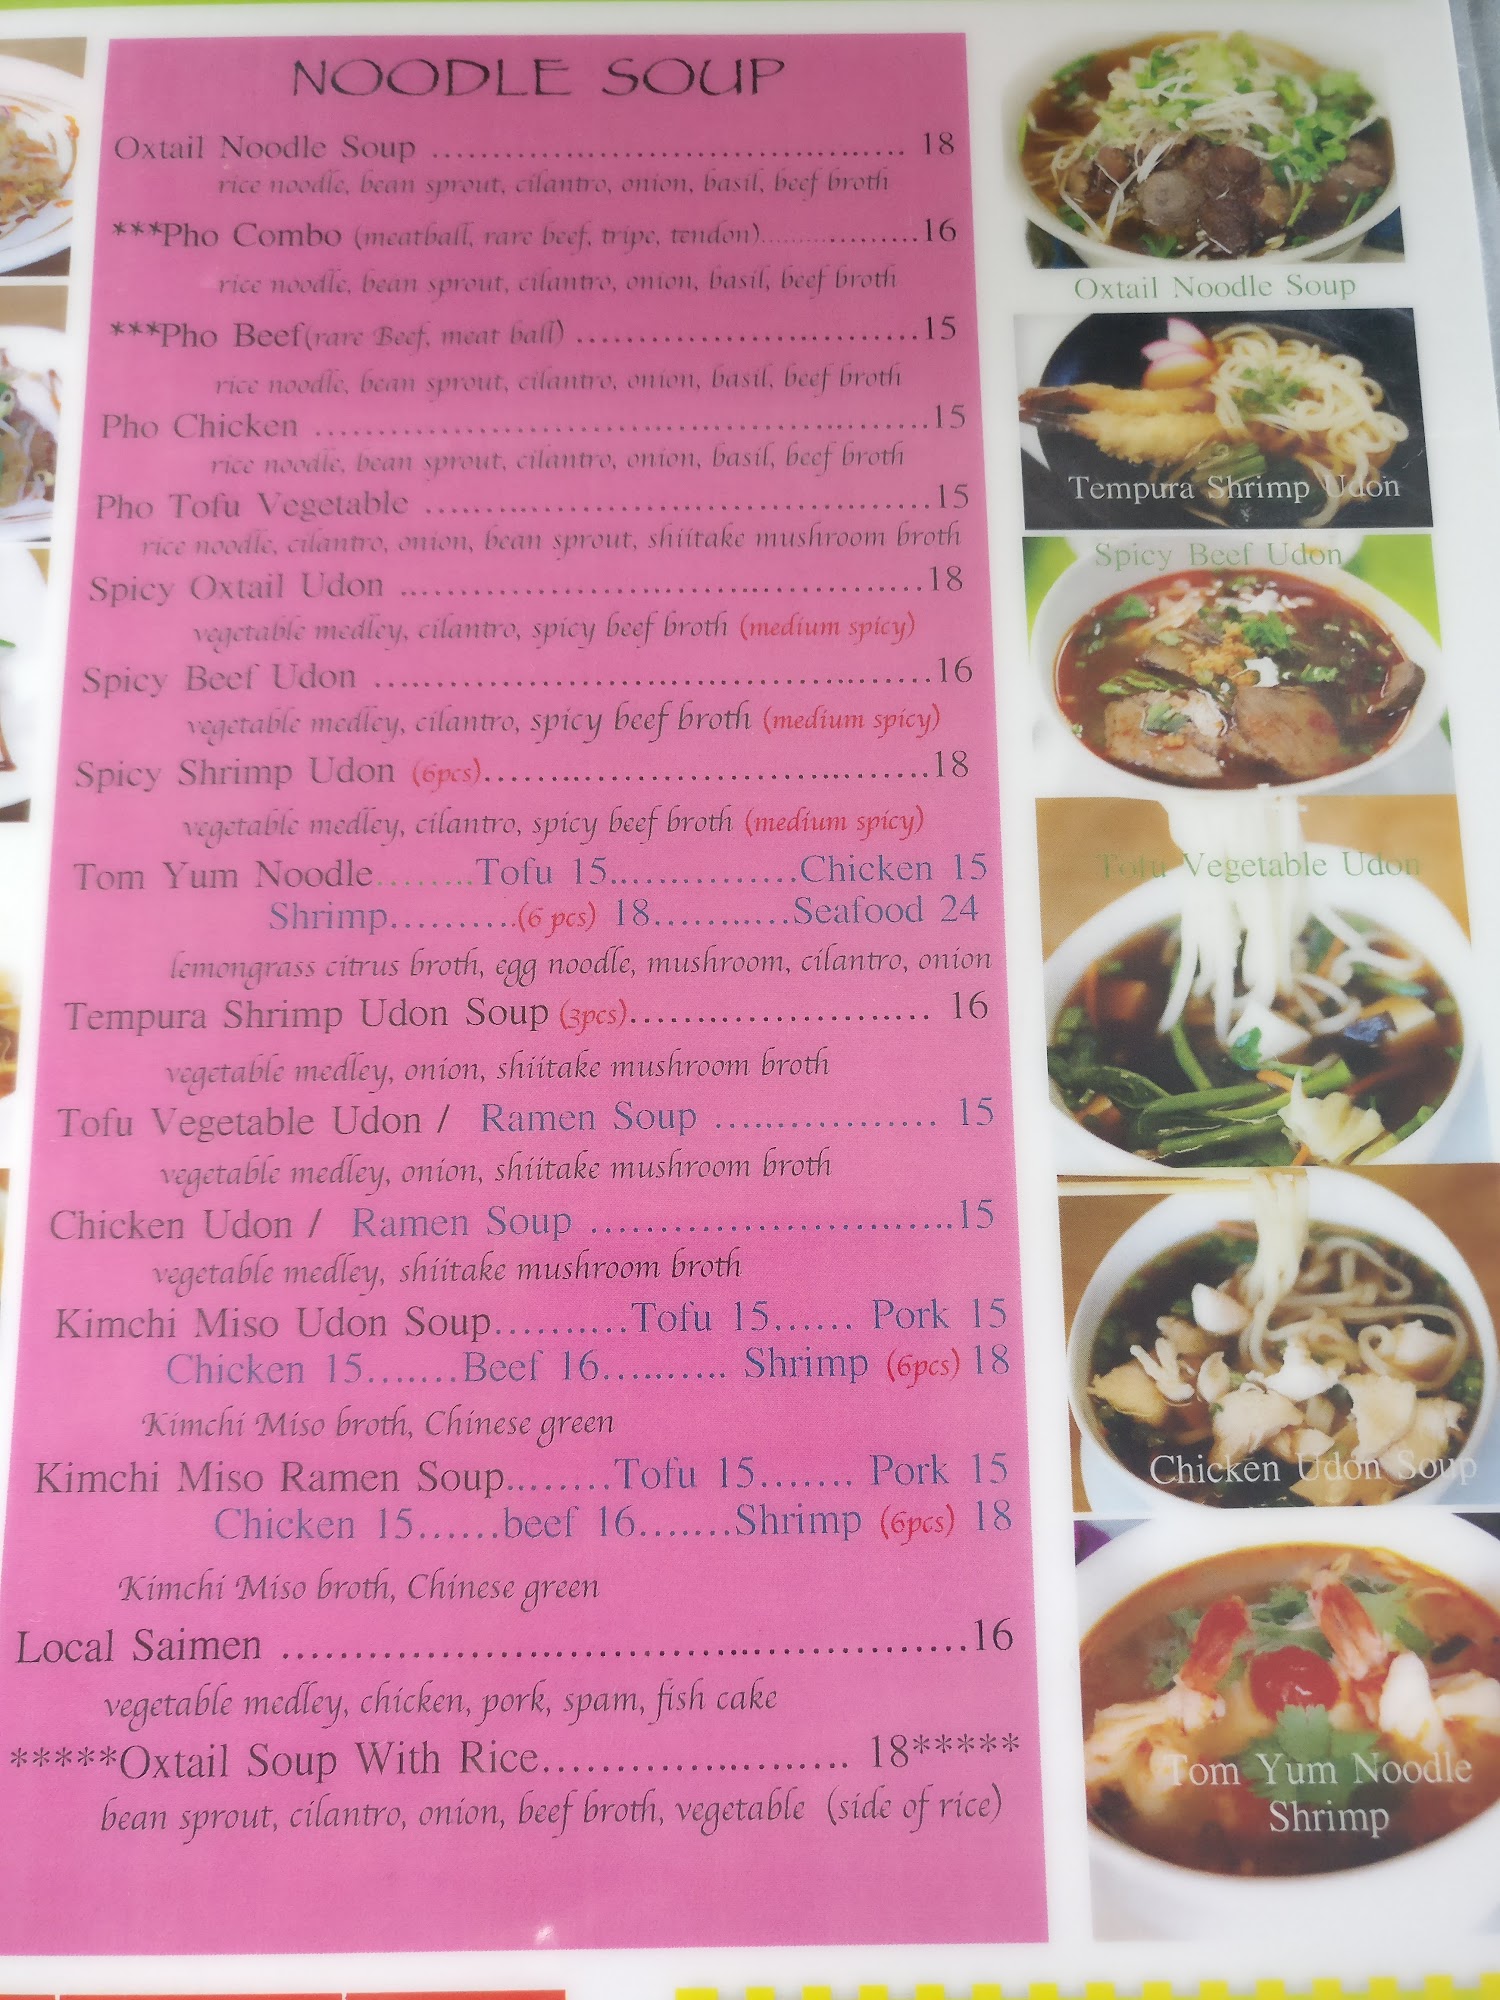 NOODLE SOUP
Oxtail Noodle Soup ........................................ 18
rice noodle, bean sprout, cilantro, onion, basil, beef broth
***Pho Combo (meatball, rare beef, tripe, tendon)..................16
rice noodle, bean sprout, cilantro, onion, basil, beef broth
***Pho Beef(rare Beef, meat ball) ..............................15
rice noodle, bean sprout, cilantro, onion, basil, beef broth
Pho Chicken ....................................................15
rice noodle, bean sprout, cilantro, onion, basil, beef broth
Pho Tofu Vegetable ...........................................15
rice noodle, cilantro, onion, bean sprout, shiitake mushroom broth
Spicy Oxtail Udon .............................................18
vegetable medley, cilantro, spicy beef broth (medium spicy)
Spicy Beef Udon ...............................................16
vegetable medley, cilantro, spicy beef broth (medium spicy)
Spicy Shrimp Udon (6pcs)......................................18
vegetable medley, cilantro, spicy beef broth (medium spicy)
Tom Yum Noodle........Tofu 15................Chicken 15
Shrimp..........(6 pcs) 18...........Seafood 24
lemongrass citrus broth, egg noodle, mushroom, cilantro, onion
Tempura Shrimp Udon Soup (3pcs)........................ 16
vegetable medley, onion, shiitake mushroom broth
Tofu Vegetable Udon / Ramen Soup .................. 15
vegetable medley, onion, shiitake mushroom broth
Chicken Udon / Ramen Soup .............................15
vegetable medley, shiitake mushroom broth
Kimchi Miso Udon Soup..........Tofu 15...... Pork 15
Chicken 15.......Beef 16.......... Shrimp (6pcs) 18
Kimchi Miso broth, Chinese green
Kimchi Miso Ramen Soup.........Tofu 15....... Pork 15
Chicken 15......beef 16.......Shrimp (6pcs) 18
Kimchi Miso broth, Chinese green
Local Saimen ..................................................16
vegetable medley, chicken, pork, spam, fish cake
*****Oxtail Soup With Rice........................ 18*****
bean sprout, cilantro, onion, beef broth, vegetable (side of rice)
Oxtail Noodle Soup
Tempura Shrimp Udon
Spicy Beef Udon
Tofu Vegetable Udon
Chicken Udon Soup
Tom Yum Noodle
Shrimp